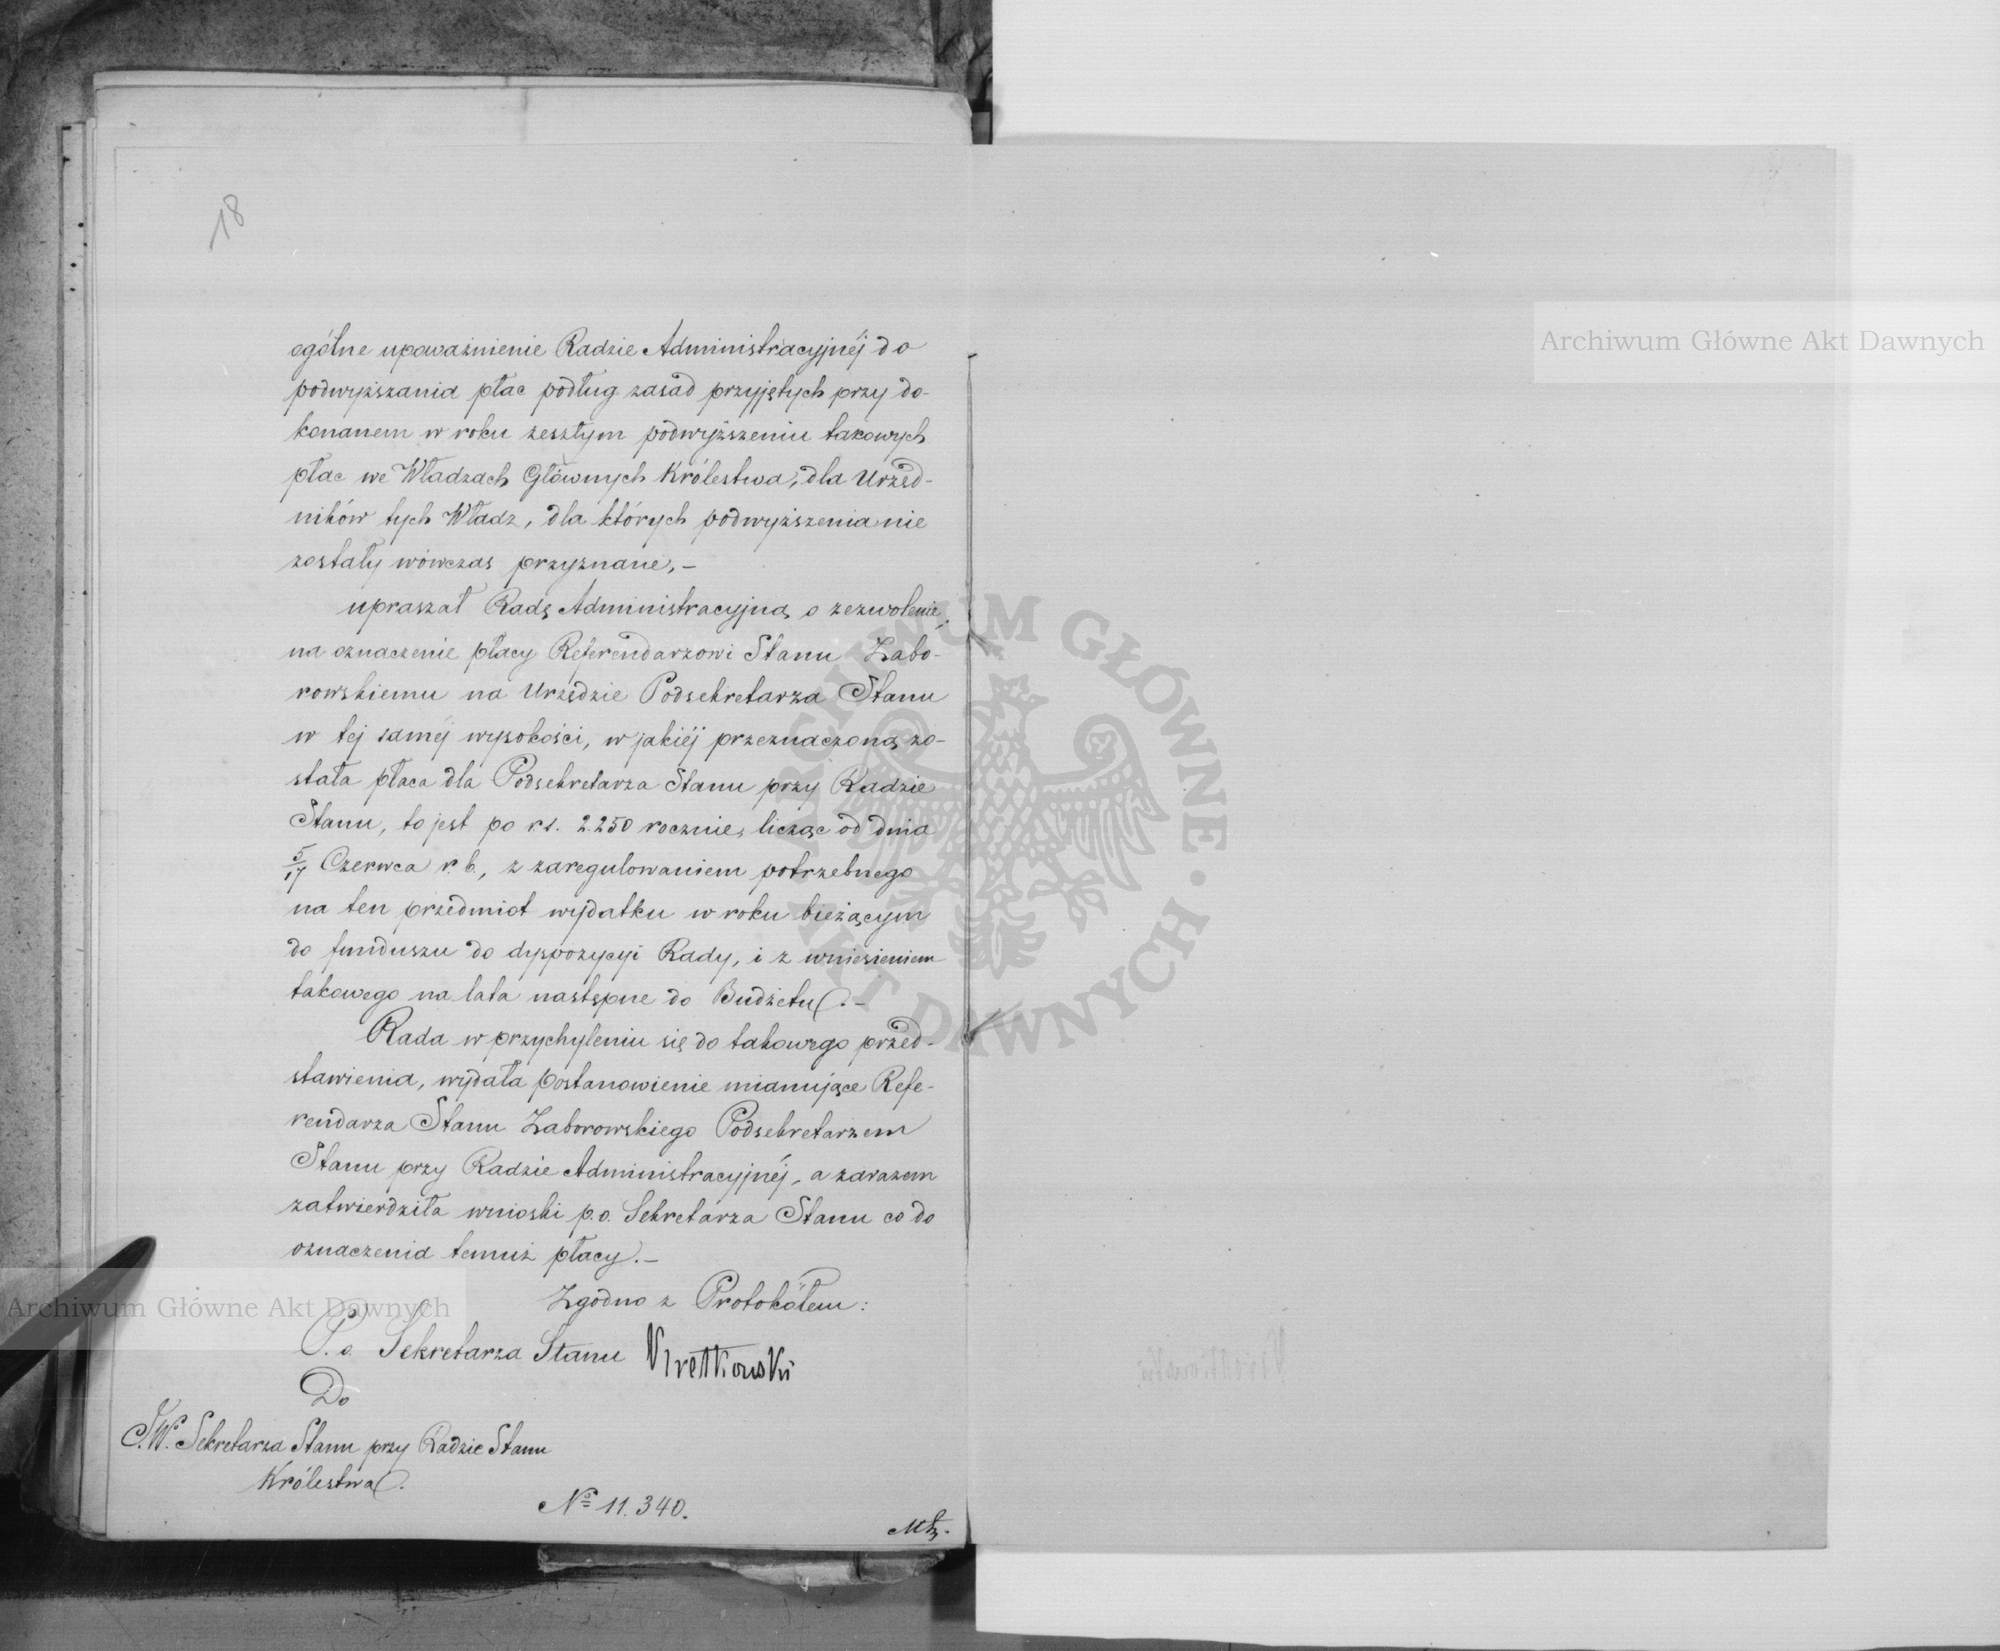 18
ogólne upoważnienie Radzie Administracyjnéj do
podwyższania płac podług zasad przyjętych przy do-
konanem w roku zeszłym podwyższeniu takowych
płac we Władzach Głównych Królestwa, dla Urzęd-
ników tych Władz, dla których podwyższenia nie
zostały wówczas przyznane, –
upraszał Radę Administracyjną o zezwolenie
na oznaczenie płacy Referendarzowi Stanu Zabo-
rowskiemu na Urzędzie Podsekretarza Stanu
w tej saméj wysokości, w jakiéj przeznaczoną zo-
stała płaca dla Podsekretarza Stanu przy Radzie
Stanu, to jest po rs. 2.250 rocznie, licząc od dnia
5/17 Czerwca r. b., z zaregulowaniem potrzebnego
na ten przedmiot wydatku w roku bieżącym
do funduszu do dyspozycyi Rady, i z wniesieniem
takowego na lata następne do Budżetu. –
Rada w przychyleniu się do takowego przed-
stawienia, wydała postanowienie mianujące Refe-
rendarza Stanu Zaborowskiego Podsekretarzem
Stanu przy Radzie Administracyjnéj, a zarazem
zatwierdziła wnioski p.o. Sekretarza Stanu co do
oznaczenia temuż płacy. –
Zgodno z Protokółem:
P. o. Sekretarza Stanu
Do
J.W. Sekretarza Stanu przy Radzie Stanu
Królestwa.
№ 11.340.
Archiwum Główne Akt Dawnych
Archiwum Główne Akt Dawnych
ARCHIWUM GŁÓWNE AKT DAWNYCH